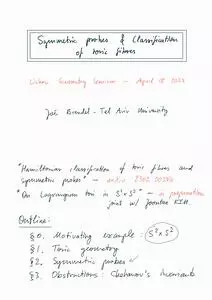 Symmetric probes & Classification
of toric fibres
Lisbon Geometry Seminar - April 18 2023
Joé Brendel - Tel Aviv University
"Hamiltonian classification of toric fibres and
symmetric probes" - arXiv 2302.00334
"On Lagrangian tori in S²×S²" - in preparation
joint w/ Joontae Kim
Outline:
§0. Motivating example S²×S²
§1. Toric geometry
§2. Symmetric probes
§3. Obstructions: Chekanov's invariants